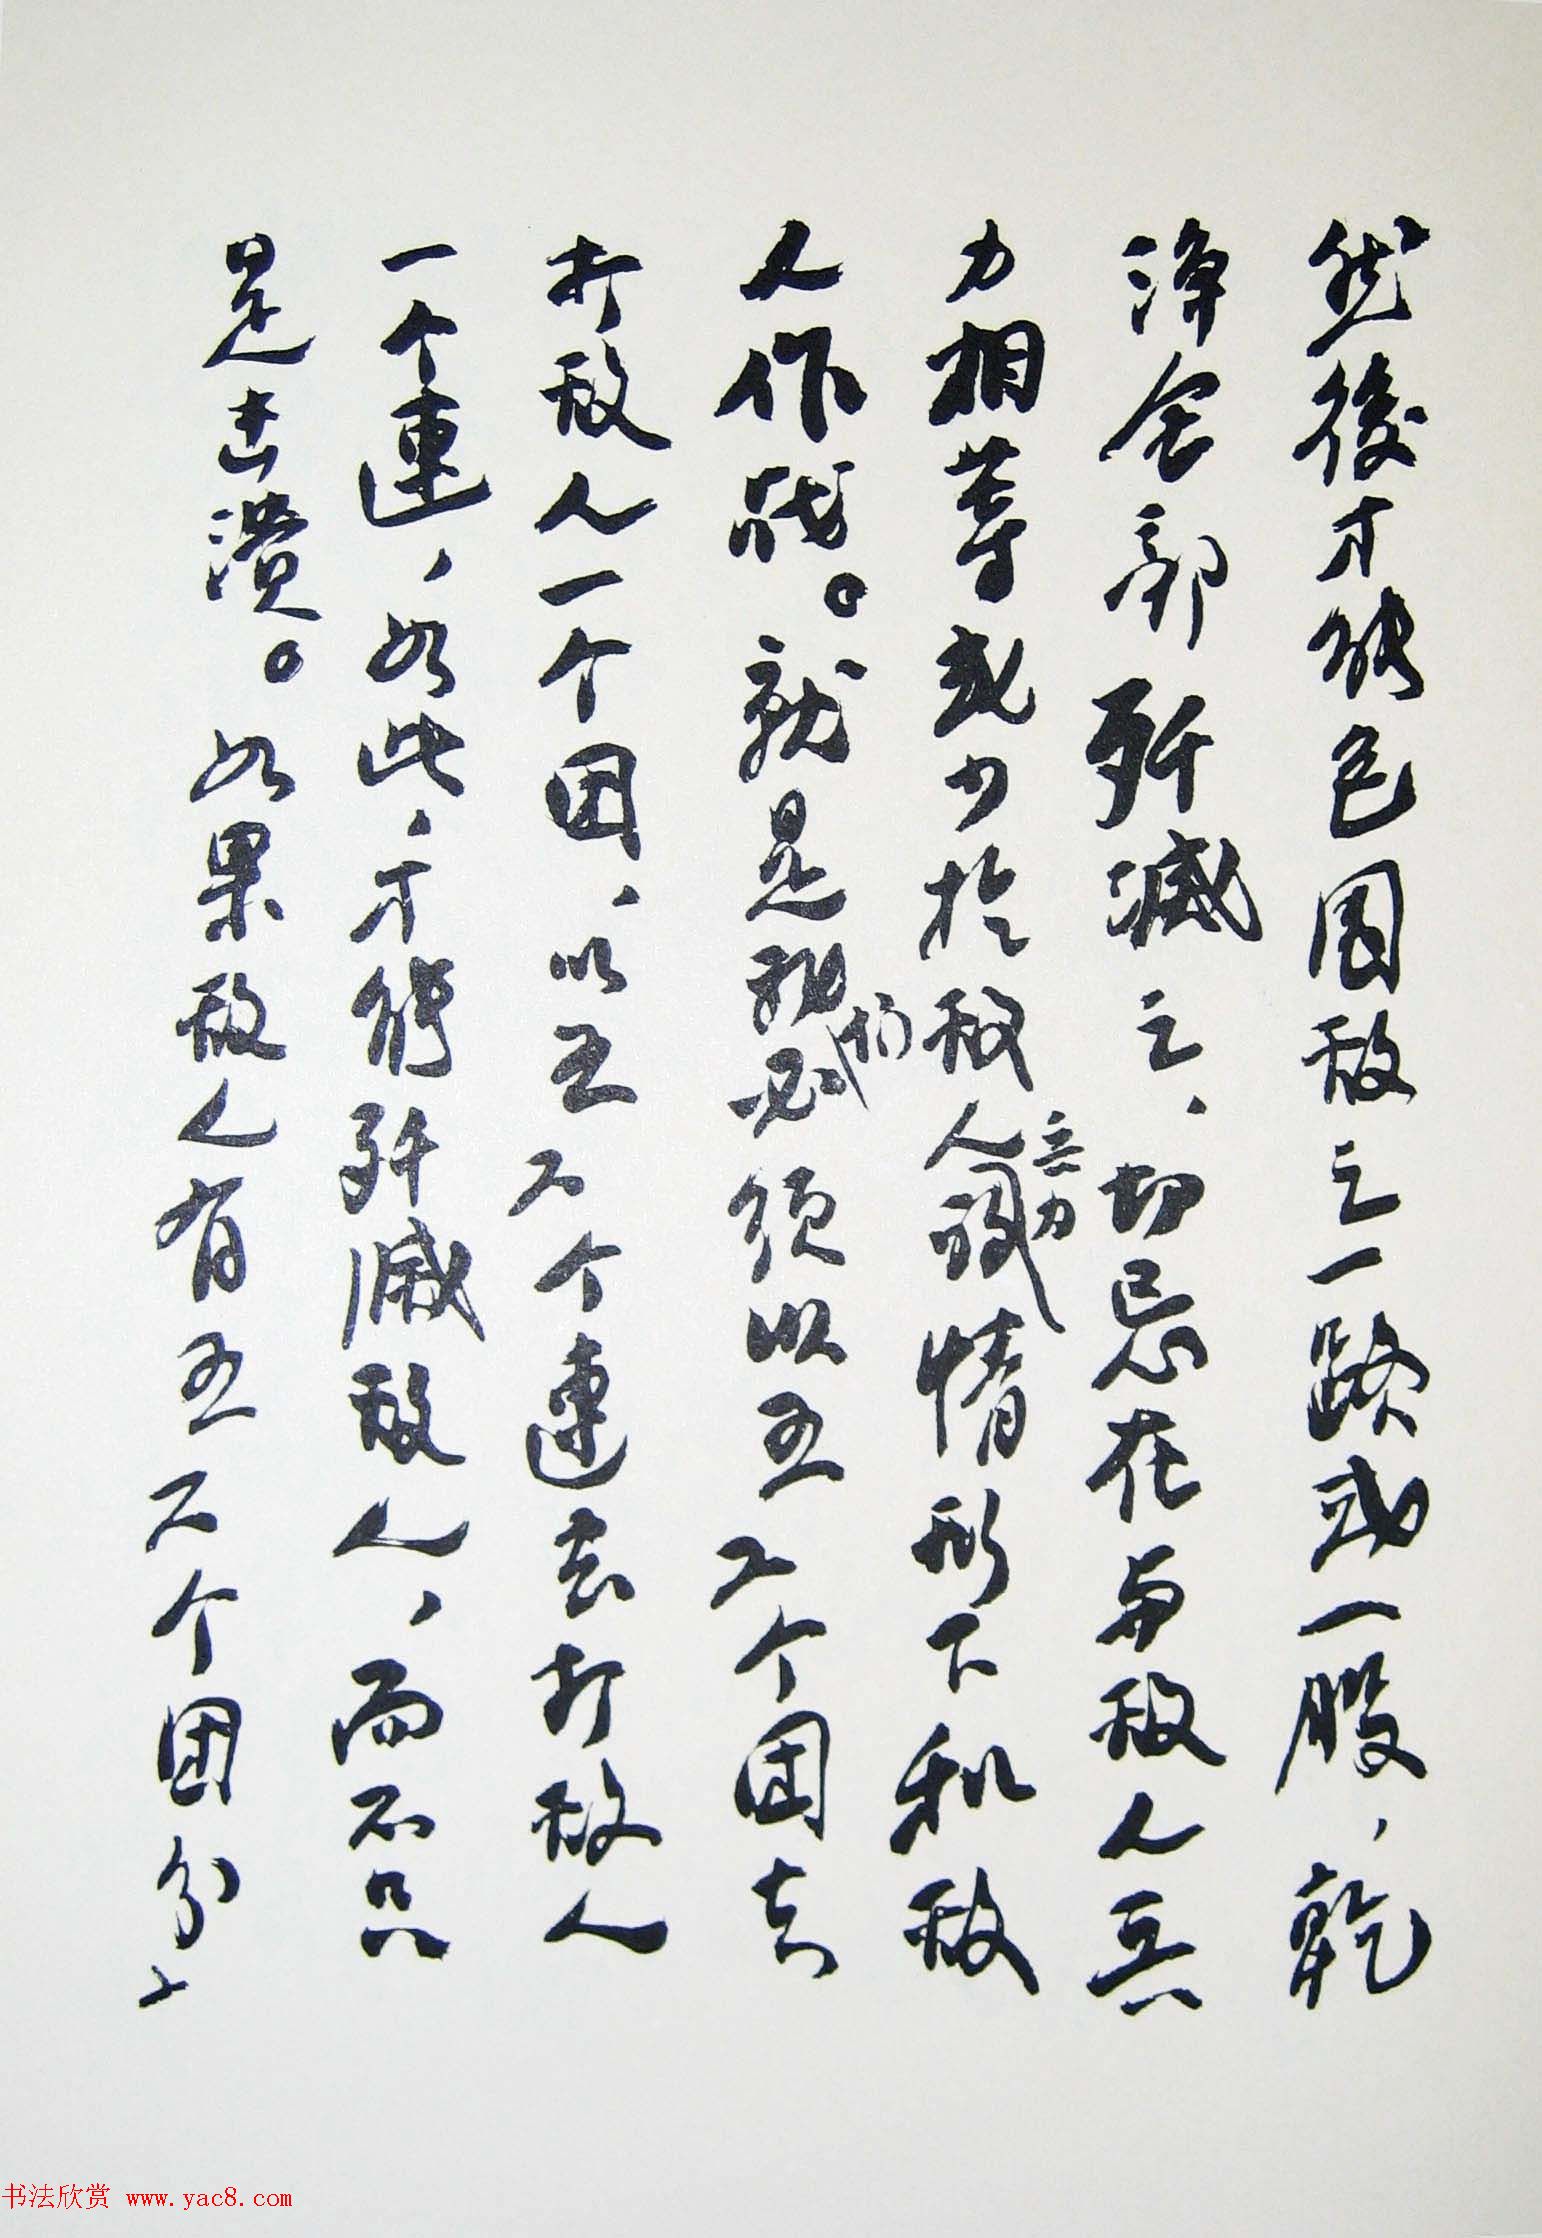 然後才能包围敌之一路或一股，乾
净全部歼滅之，切忌在与敌人兵
力相等或少於敌人兵力情形下和敌
人作战。就是我们必须以五六个团去
打敌人一个团，以五六个連去打敌人
一个連，如此，才能歼滅敌人，而不只
是击溃。如果敌人有五六个团分
书法欣赏 www.yac8.com